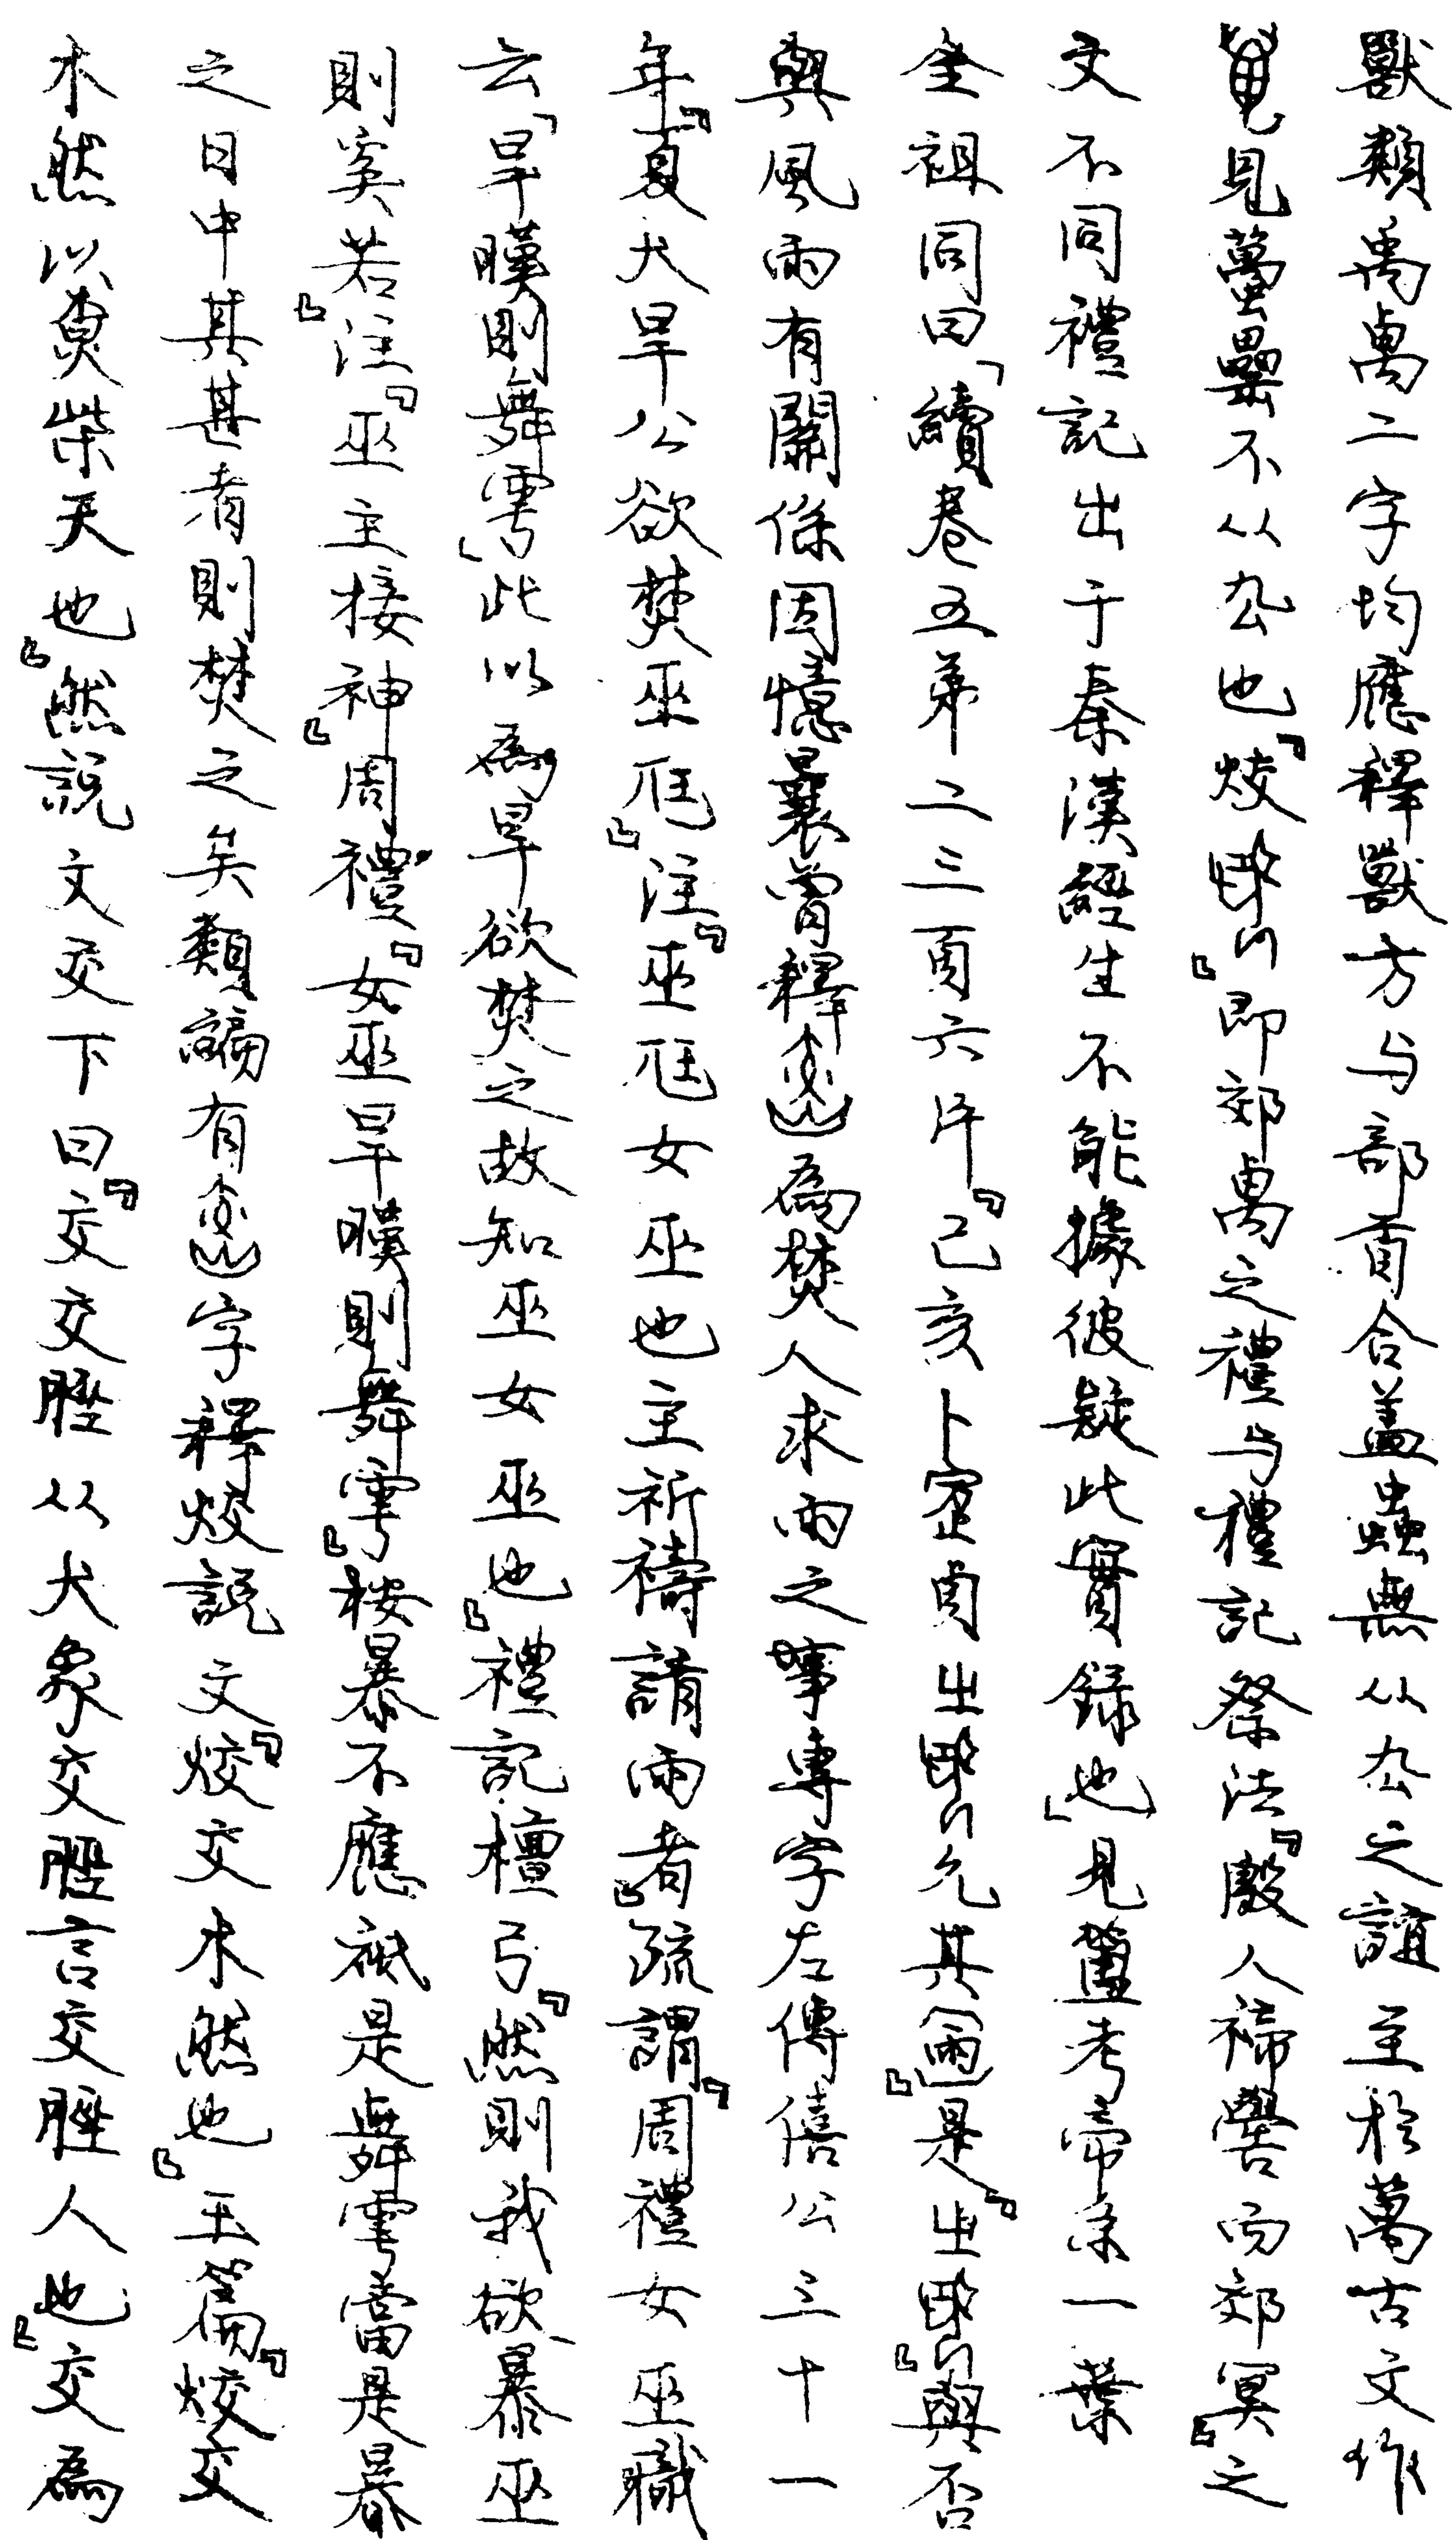 獸類禹萬二字均應釋獸方与部首合蓋蟲無从厹之誼至於萬古文作
見蠆罍不从厹也『烄』即郊禼之禮与禮記祭法『殷人禘嚳而郊冥』之
文不同禮記出于秦漢經生不能據彼疑此實錄也」見簠考帝系一葉
金祖同曰「續卷五第二三頁六片『己亥卜㱿貞㞢允其』是『㞢』與否
與風雨有關係因憶曩曾釋為焚人求雨之事專字左傳僖公三十一
年『夏大旱公欲焚巫尪』注『巫尪女巫也主祈禱請雨者』疏謂『周禮女巫職
云「旱暵則舞雩」此以為旱欲焚之故知巫女巫也』禮記檀弓『然則我欲暴巫
則奚若』注『巫主接神』周禮『女巫旱暵則舞雩』按暴不應祇是舞雩當是暴
之日中其甚者則焚之矣類謫有字釋烄說文『烄交木然也』玉篇『烄交
木然以尞柴天也』然說文交下曰『交交脛从大象交脛言交脛人也』交為